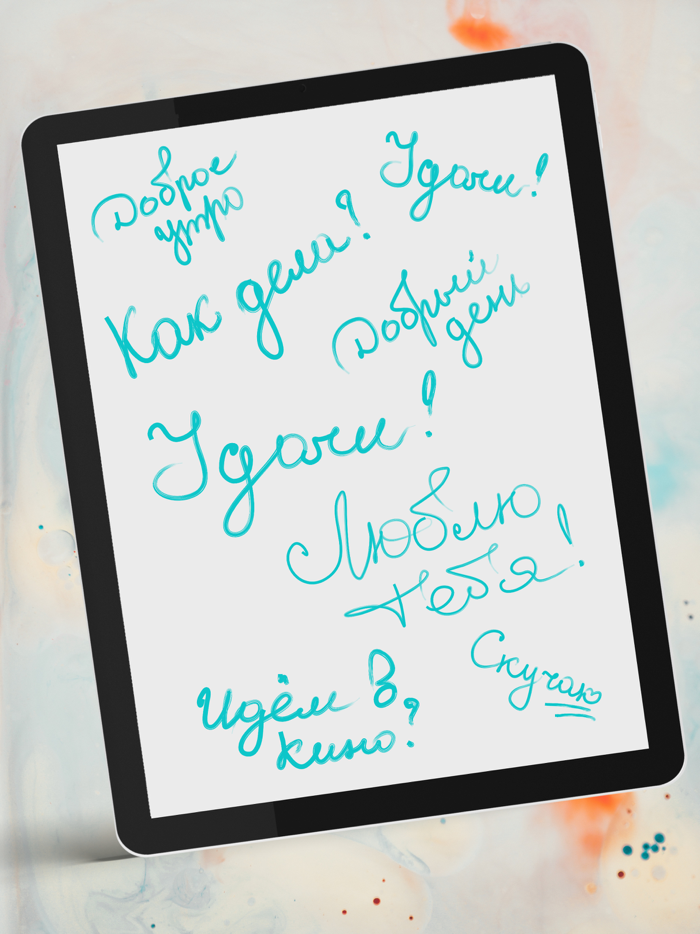 Доброе
утро
Удачи!
Как дела?
Добрый
день
Удачи!
Люблю
тебя!
Скучаю
Идём в
кино?